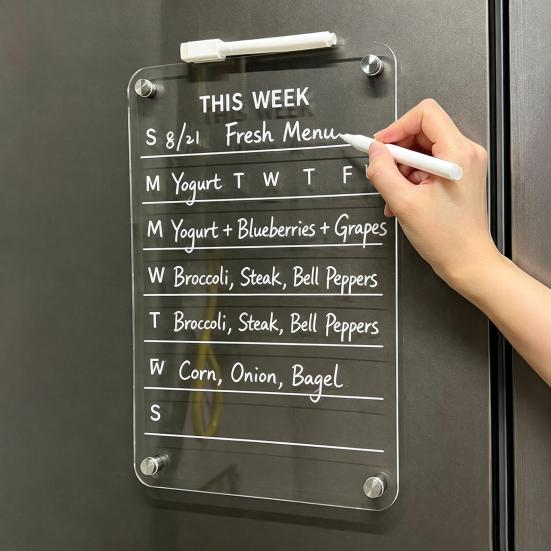 THIS WEEK
S 8/21 Fresh Menu
M Yogurt T W T F
M Yogurt + Blueberries + Grapes
W Broccoli, Steak, Bell Peppers
T Broccoli, Steak, Bell Peppers
W Corn, Onion, Bagel
S